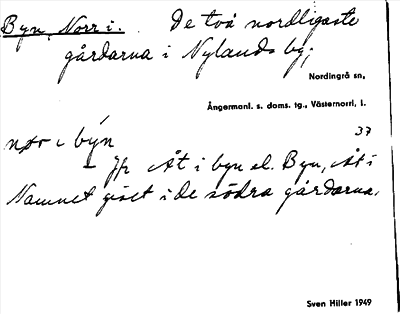 Byn, Norr i. De två nordligaste
gårdarna i Nylands by;
Nordingrå sn,
Ångermanl. s. doms. tg., Västernorrl. l.
37
nọr i býn
– Jfr Åt i byn el. Byn, Åt i
Namnet givet i de södra gårdarna.
Sven Hiller 1949